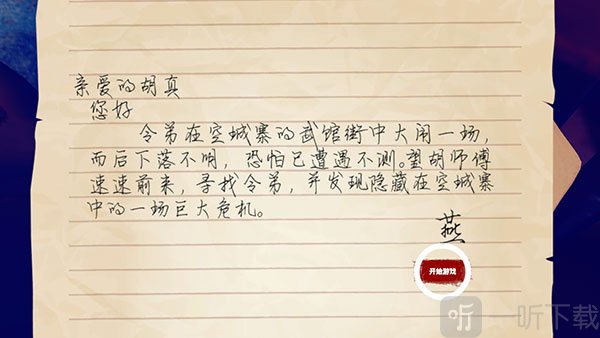 亲爱的胡真
您好
令弟在空城寨的武馆街中大闹一场，
而后下落不明，恐怕已遭遇不测。望胡师傅
速速前来，寻找令弟，并发现隐藏在空城寨
中的一场巨大危机。
燕
开始游戏
听 一听下载